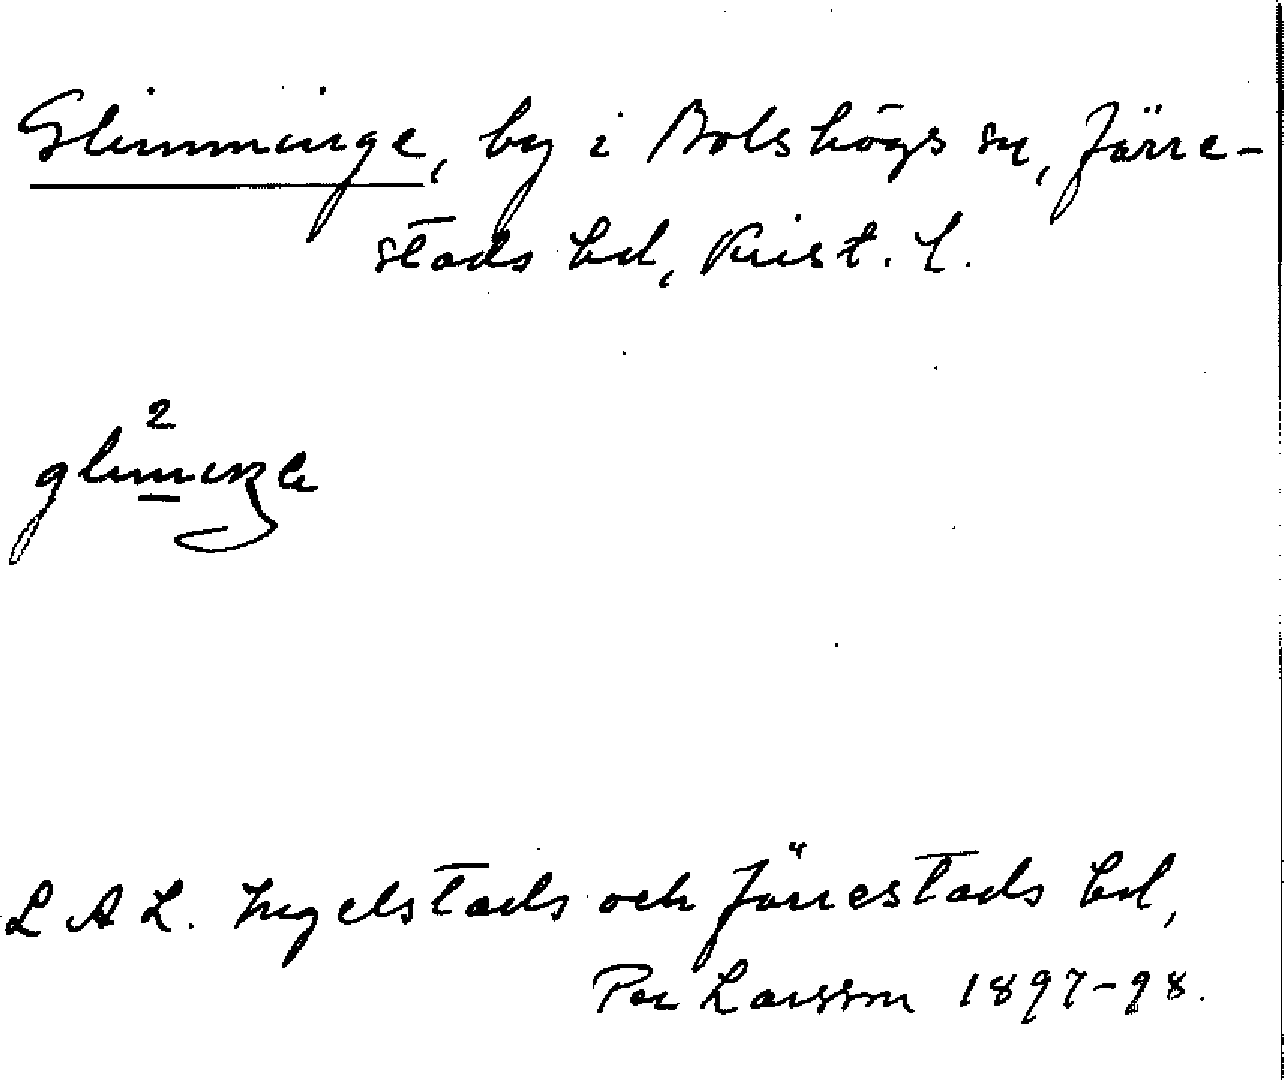 Glimminge, by i Bolshögs sn, Järre-
stads hd, Krist. l.
L A L. Ingelstads och Järrestads hd,
Per Larsson 1897-98.